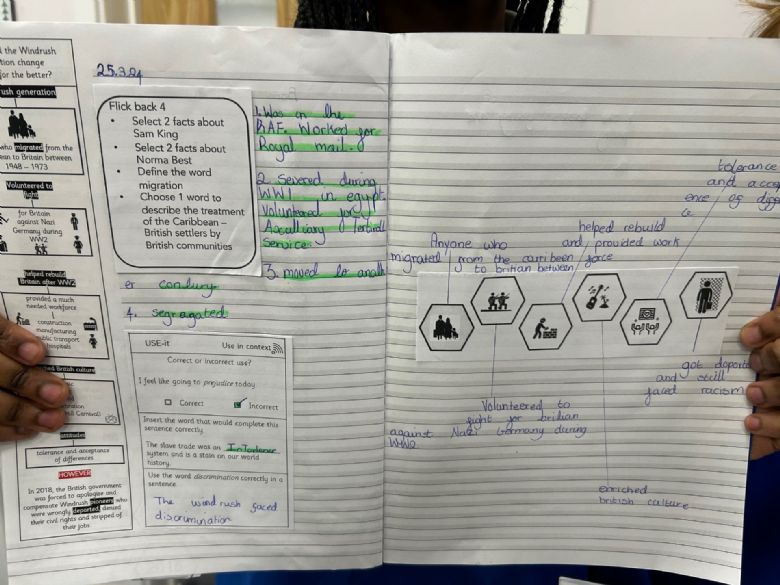 d the Windrush
tion change
for the better?
rush generation
who migrated from the
ean to Britain between
1948 – 1973
Volunteered to
fight
for Britain
against Nazi
Germany during
WW2
helped rebuild
Britain after WW2
provided a much
needed workforce
construction
manufacturing
public transport
hospitals
ched British culture
tolerance and acceptance
of differences
HOWEVER
In 2018, the British government
was forced to apologise and
compensate Windrush pioneers who
were wrongly deported, denied
their civil rights and stripped of
their jobs
25.3.24
Flick back 4
• Select 2 facts about
Sam King
• Select 2 facts about
Norma Best
• Define the word
migration
• Choose 1 word to
describe the treatment
of the Caribbean –
British settlers by
British communities
1. Was in the
RAF. Worked for
Royal mail.
2. Severed during
WW1 in egypt
Volunteered for
Service
3. moved to anoth
er contury
4. segragated
USE-it
Use in context
Correct or incorrect use?
I feel like going to prejudice today
Correct
Incorrect
Insert the word that would complete this
sentence correctly.
The slave trade was an
system and is a stain on our world
history.
Use the word discrimination correctly in a
sentence.
The windrush faced
discrumination
tolerance
and accept
ence of diff
helped rebuild
and provided work
force
Anyone who
migrated from the carribean
to britian between
Volunteered to
fight for britian
against Nazi Germany during
WW2
got deported
and still
faced racism
enriched
british culture